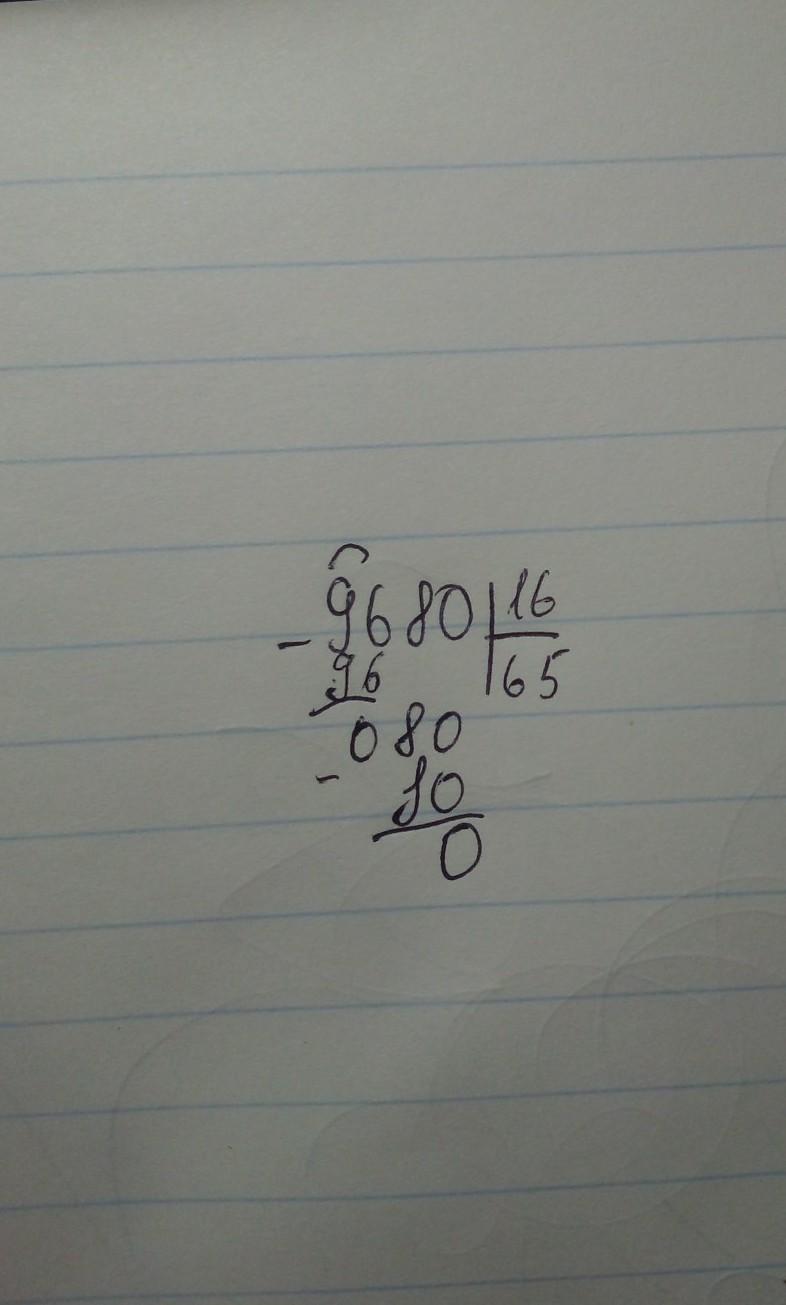 - 9680 | 16
96 | 65
080
- 80
0